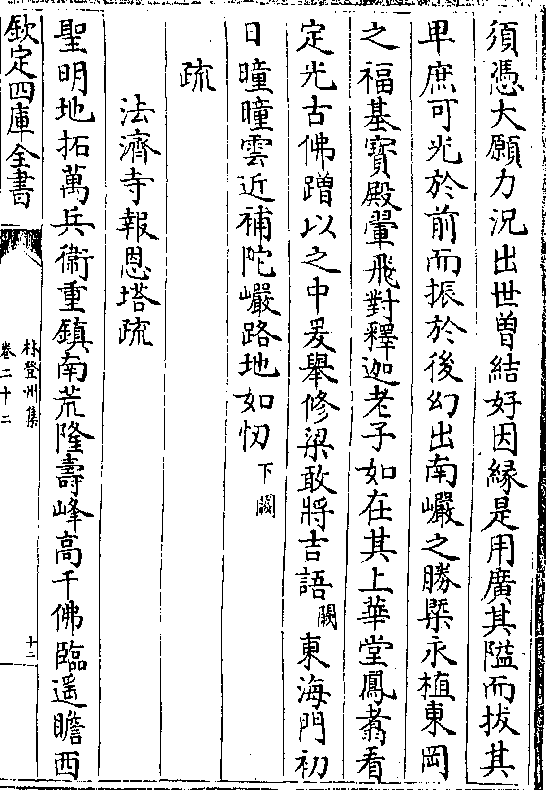 須憑大願力況出世曽結好因縁是用廣其隘而拔其
卑庶可光於前而振於後幻出南巖之勝槩永植東岡
之福基寶殿翬飛對釋迦老子如在其上華堂鳳翥看
定光古佛蹭以之中爰舉修梁敢將吉語闕東海門初
日曈曈雲近補陀巖路地如忉下闕
疏
法濟寺報恩塔疏
聖明地拓萬兵衞重鎮南荒隆壽峰髙千佛臨遥瞻西
欽定四庫全書
林登州集
卷二十二
十二